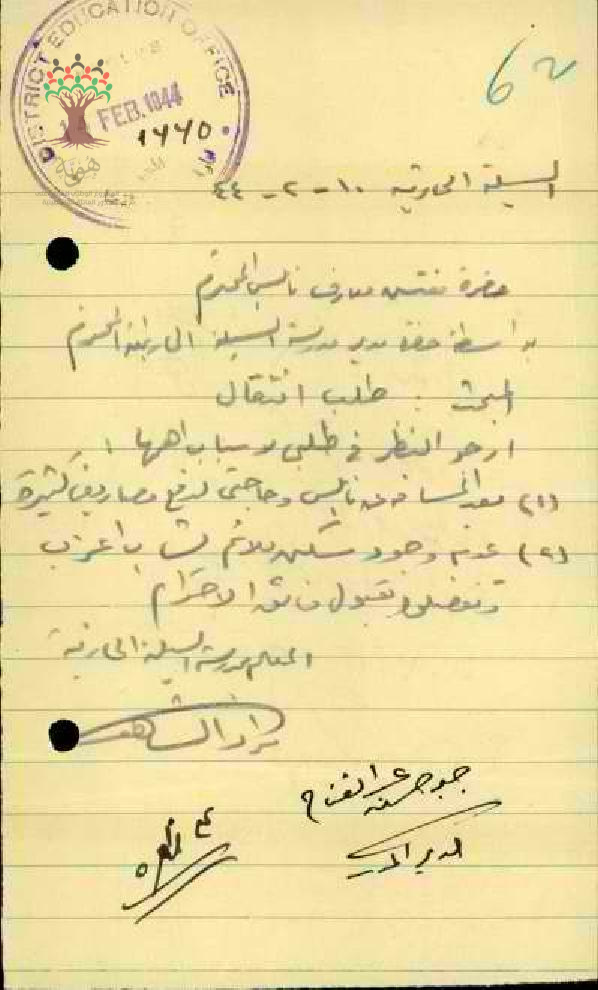 DISTRICT EDUCATION OFFICE
FEB. 1944
١٧٧٥
62
السيلة الحارثية ١٠-٢-٤٤
حضرة مفتش معارف نابلس المحترم
بواسطة حضرة مدير مدرسة السيلة الحارثية المحترم
المبحث : طلب انتقال
ارجو النظر في طلبي لاسباب اهمها :
(١) بعد المسافة عن نابلس وحاجتي لدفع مصاريف كثيرة
(٢) عدم وجود سكن ملائم لشاب اعزب
وتفضلوا بقبول فائق الاحترام
المعلم بمدرسة السيلة الحارثية
مدير